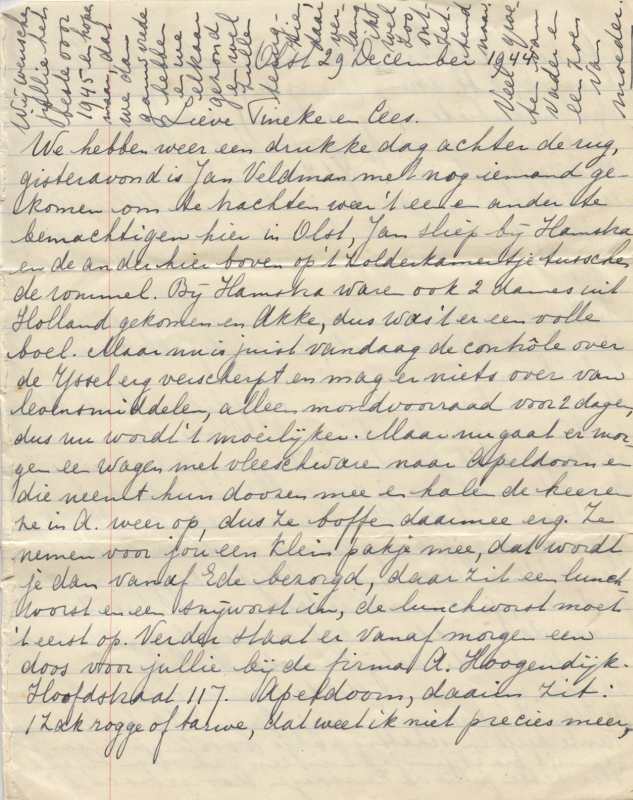 Olst 29 December 1944.
Lieve Tineke en Cees.
We hebben weer een drukke dag achter de rug,
gisteravond is Jan Veldman met nog iemand ge-
komen om te trachten weer 't een en ander te
bemachtigen hier in Olst, Jan sliep bij Hamstra
en de ander hier boven op 't zolderkamertje tusschen
de rommel. Bij Hamstra waren ook 2 dames uit
Holland gekomen en Akke, dus was 't er een volle
boel. Maar nu is juist vandaag de contrôle over
de IJssel erg verscherpt en mag er niets over van
levensmiddelen, alleen mondvoorraad voor 2 dagen,
dus nu wordt 't moeilijker. Maar nu gaat er mor-
gen een wagen met vleeschware naar Apeldoorn en
die neemt hun doozen mee en halen de heeren
ze in A. weer op, dus ze boffen daarmee erg. Ze
nemen voor jou een klein pakje mee, dat wordt
je dan vanaf Ede bezorgd, daar zit een lunch-
worst en een snijworst in, de lunchworst moet
't eerst op. Verder staat er vanaf morgen een
doos voor jullie bij de firma A. Hoogendijk.
Hoofdstraat 117. Apeldoorn, daarin zit:
1 zak rogge of tarwe, dat weet ik niet precies meer,
Wij wenschen
jullie het
beste voor
1945 en hopen
maar, dat
we dan
gauw vrede
hebben
en we
elkaar
gezond
en wel
zullen
terug-
zien,
daar
ver-
lang
ik
wel
zoo
ont-
zet-
tend
naar.
Veel groe-
ten van
vader en
een zoen
van
moeder.